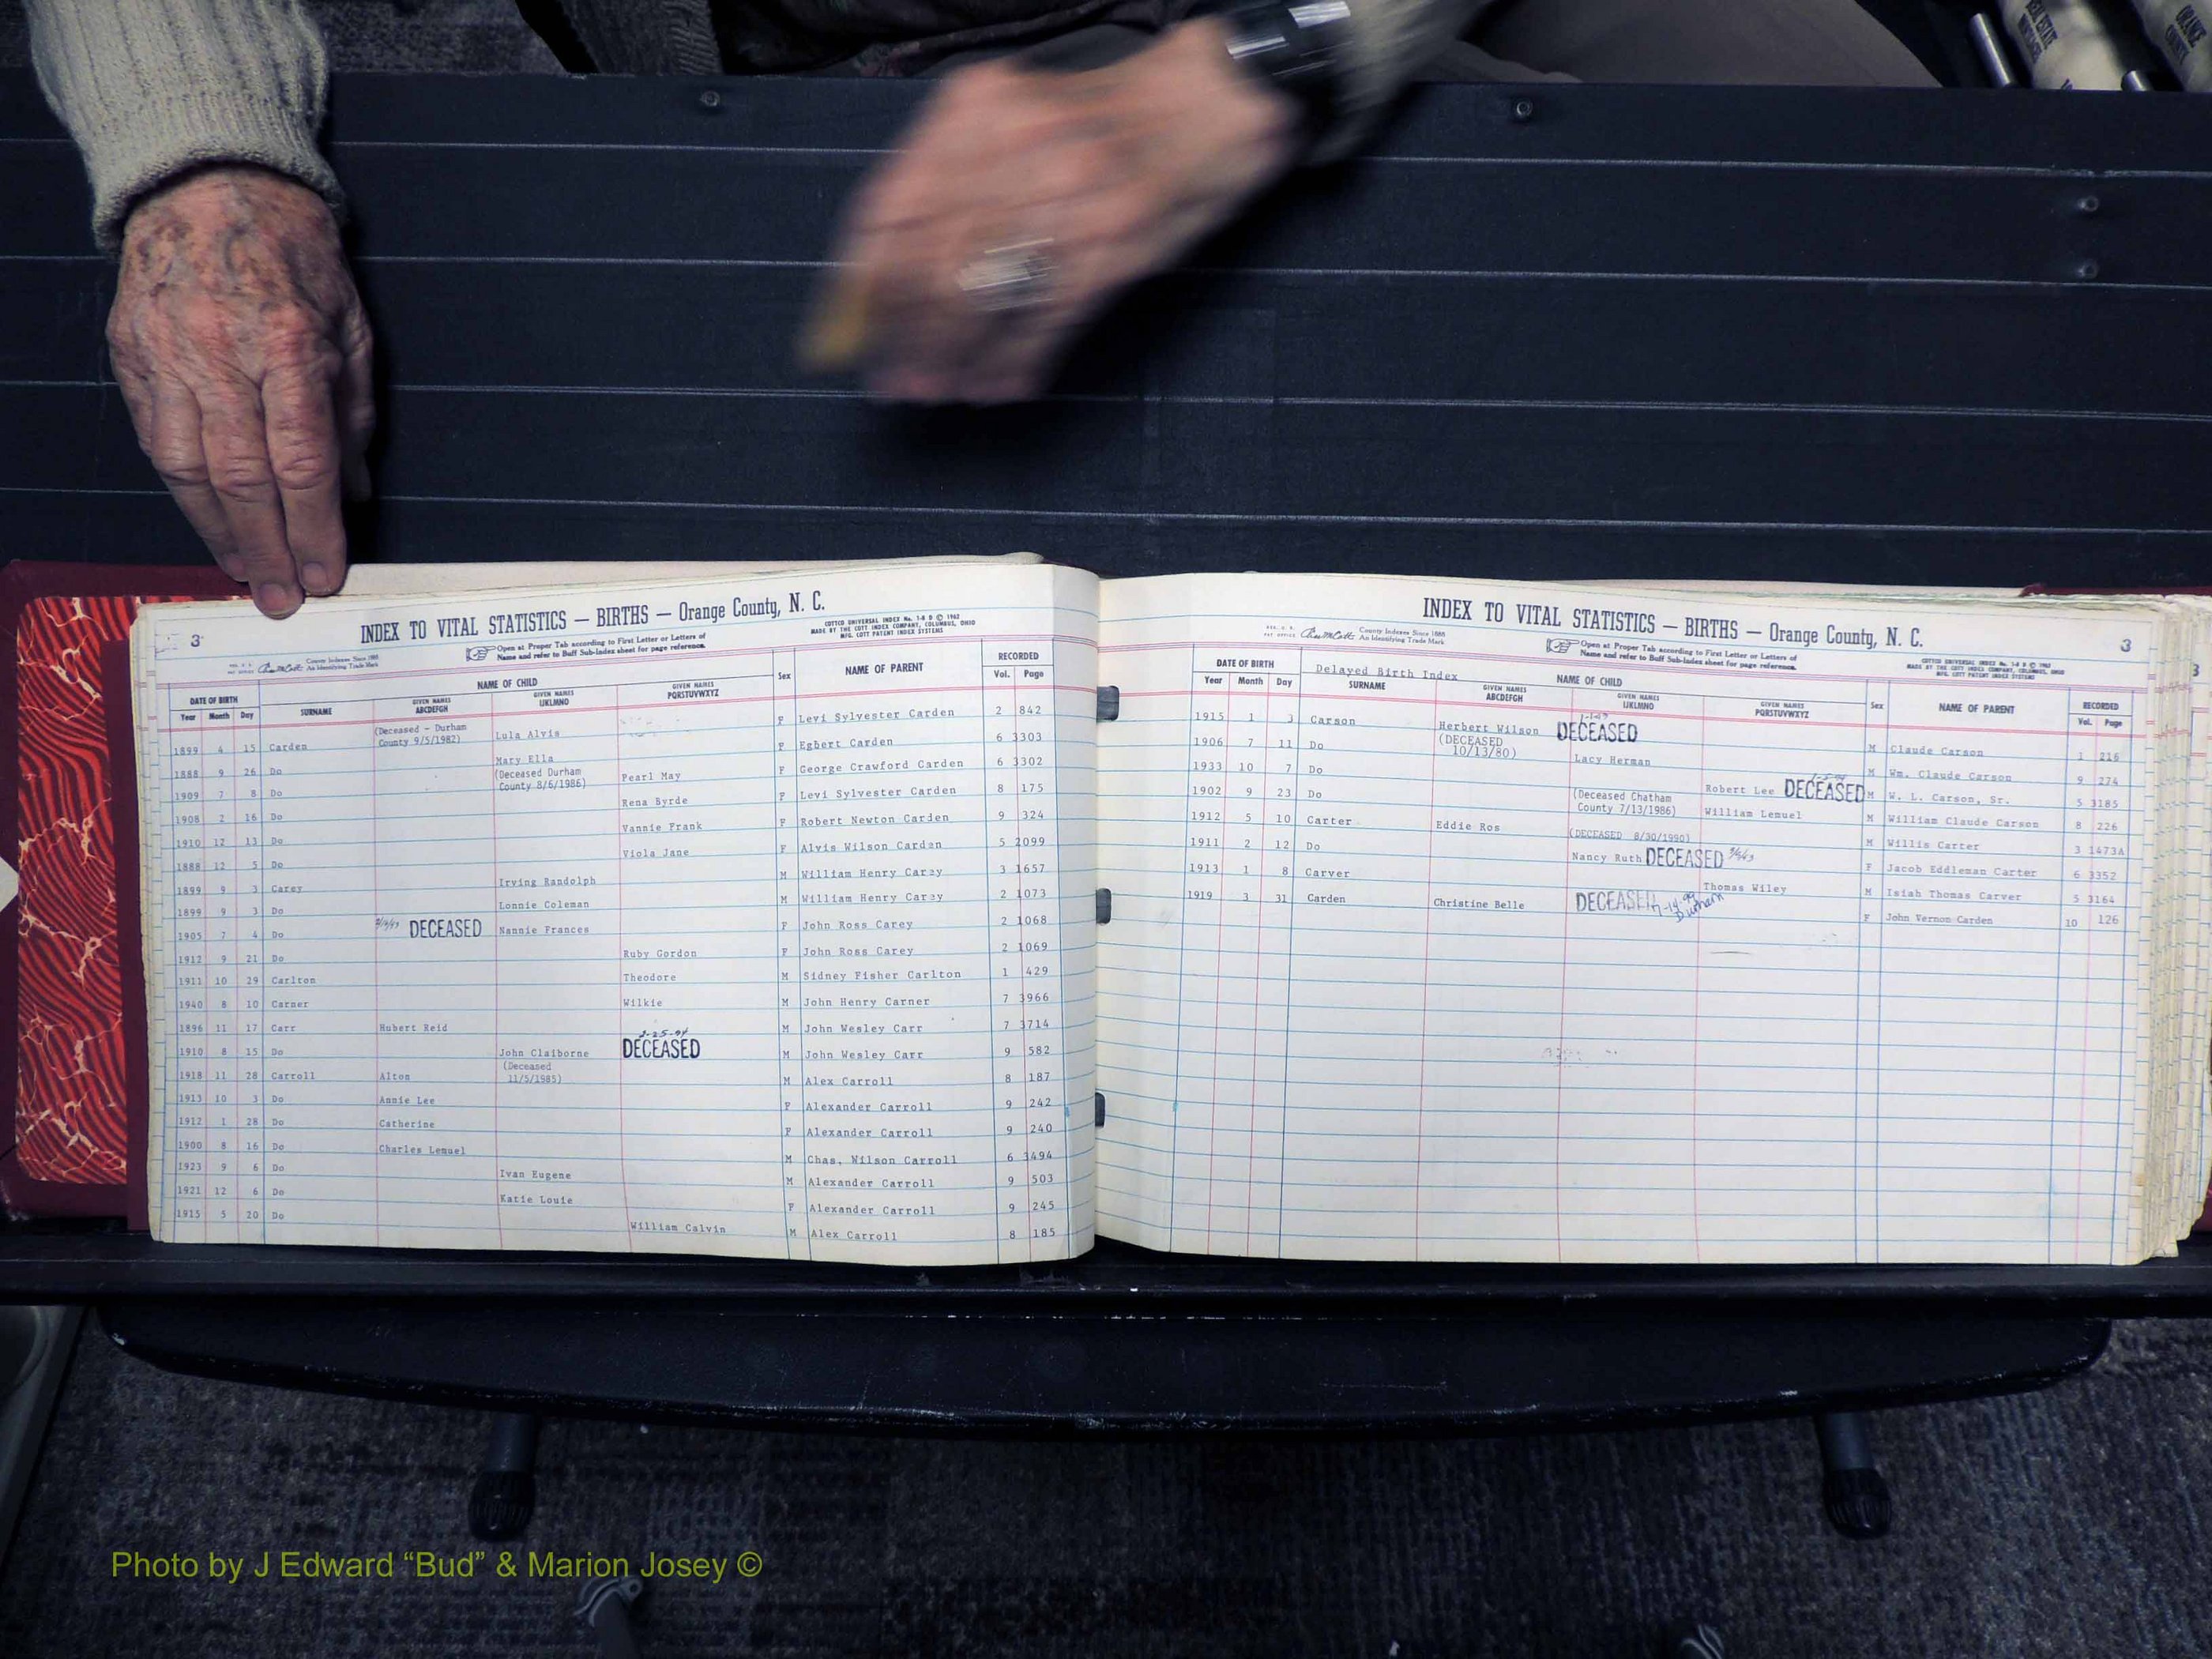 REAL ESTATE
ORANGE
COUNTY
3
INDEX TO VITAL STATISTICS — BIRTHS — Orange County, N. C.
County Indexes Since 1888
An Identifying Trade Mark
Open at Proper Tab according to First Letter or Letters of
Name and refer to Buff Sub-Index sheet for page reference.
COTTCO UNIVERSAL INDEX No. 1-8 D © 1962
MADE BY THE COTT INDEX COMPANY, COLUMBUS, OHIO
MFG. COTT PATENT INDEX SYSTEMS
DATE OF BIRTH NAME OF CHILD Sex NAME OF PARENT RECORDED
Year Month Day SURNAME GIVEN NAMES ABCDEFGH GIVEN NAMES IJKLMNO GIVEN NAMES PQRSTUVWXYZ Vol. Page
1899 4 15 Carden (Deceased - Durham County 9/5/1982) Lula Alvis F Levi Sylvester Carden 2 842
1888 9 26 Do Mary Ella (Deceased Durham County 8/6/1986) F Egbert Carden 6 3303
1909 7 8 Do Pearl May F George Crawford Carden 6 3302
1908 2 16 Do Rena Byrde F Levi Sylvester Carden 8 175
1910 12 13 Do Vannie Frank F Robert Newton Carden 9 324
1888 12 5 Do Viola Jane F Alvis Wilson Carden 5 2099
1899 9 3 Carey Irving Randolph M William Henry Carey 3 1657
1899 9 3 Do Lonnie Coleman M William Henry Carey 2 1073
1905 7 4 Do DECEASED Nannie Frances F John Ross Carey 2 1068
1912 9 21 Do Ruby Gordon F John Ross Carey 2 1069
1911 10 29 Carlton Theodore M Sidney Fisher Carlton 1 429
1940 8 10 Carner Wilkie M John Henry Carner 7 3966
1896 11 17 Carr Hubert Reid M John Wesley Carr 7 3714
1910 8 15 Do John Claiborne (Deceased 11/5/1985) DECEASED M John Wesley Carr 9 582
1918 11 28 Carroll Alton M Alex Carroll 8 187
1913 10 3 Do Annie Lee F Alexander Carroll 9 242
1912 1 28 Do Catherine F Alexander Carroll 9 240
1900 8 16 Do Charles Lemuel M Chas. Wilson Carroll 6 3494
1923 9 6 Do Ivan Eugene M Alexander Carroll 9 503
1921 12 6 Do Katie Louie F Alexander Carroll 9 245
1915 5 20 Do William Calvin M Alex Carroll 8 185
INDEX TO VITAL STATISTICS — BIRTHS — Orange County, N. C.
3
County Indexes Since 1888
An Identifying Trade Mark
Open at Proper Tab according to First Letter or Letters of
Name and refer to Buff Sub-Index sheet for page reference.
COTTCO UNIVERSAL INDEX No. 1-8 D © 1962
MADE BY THE COTT INDEX COMPANY, COLUMBUS, OHIO
MFG. COTT PATENT INDEX SYSTEMS
Delayed Birth Index
DATE OF BIRTH NAME OF CHILD Sex NAME OF PARENT RECORDED
Year Month Day SURNAME GIVEN NAMES ABCDEFGH GIVEN NAMES IJKLMNO GIVEN NAMES PQRSTUVWXYZ Vol. Page
1915 1 3 Carson Herbert Wilson (DECEASED 10/13/80) DECEASED M Claude Carson 1 216
1906 7 11 Do Lacy Herman M Wm. Claude Carson 9 274
1933 10 7 Do Robert Lee DECEASED M W. L. Carson, Sr. 5 3185
1902 9 23 Do (Deceased Chatham County 7/13/1986) William Lemuel M William Claude Carson 8 226
1912 5 10 Carter Eddie Ros (DECEASED 8/30/1990) M Willis Carter 3 1473A
1911 2 12 Do Nancy Ruth DECEASED F Jacob Eddleman Carter 6 3352
1913 1 8 Carver Thomas Wiley M Isiah Thomas Carver 5 3164
1919 3 31 Carden Christine Belle DECEASED 7-14-99 Durham F John Vernon Carden 10 126
Photo by J Edward “Bud” & Marion Josey ©